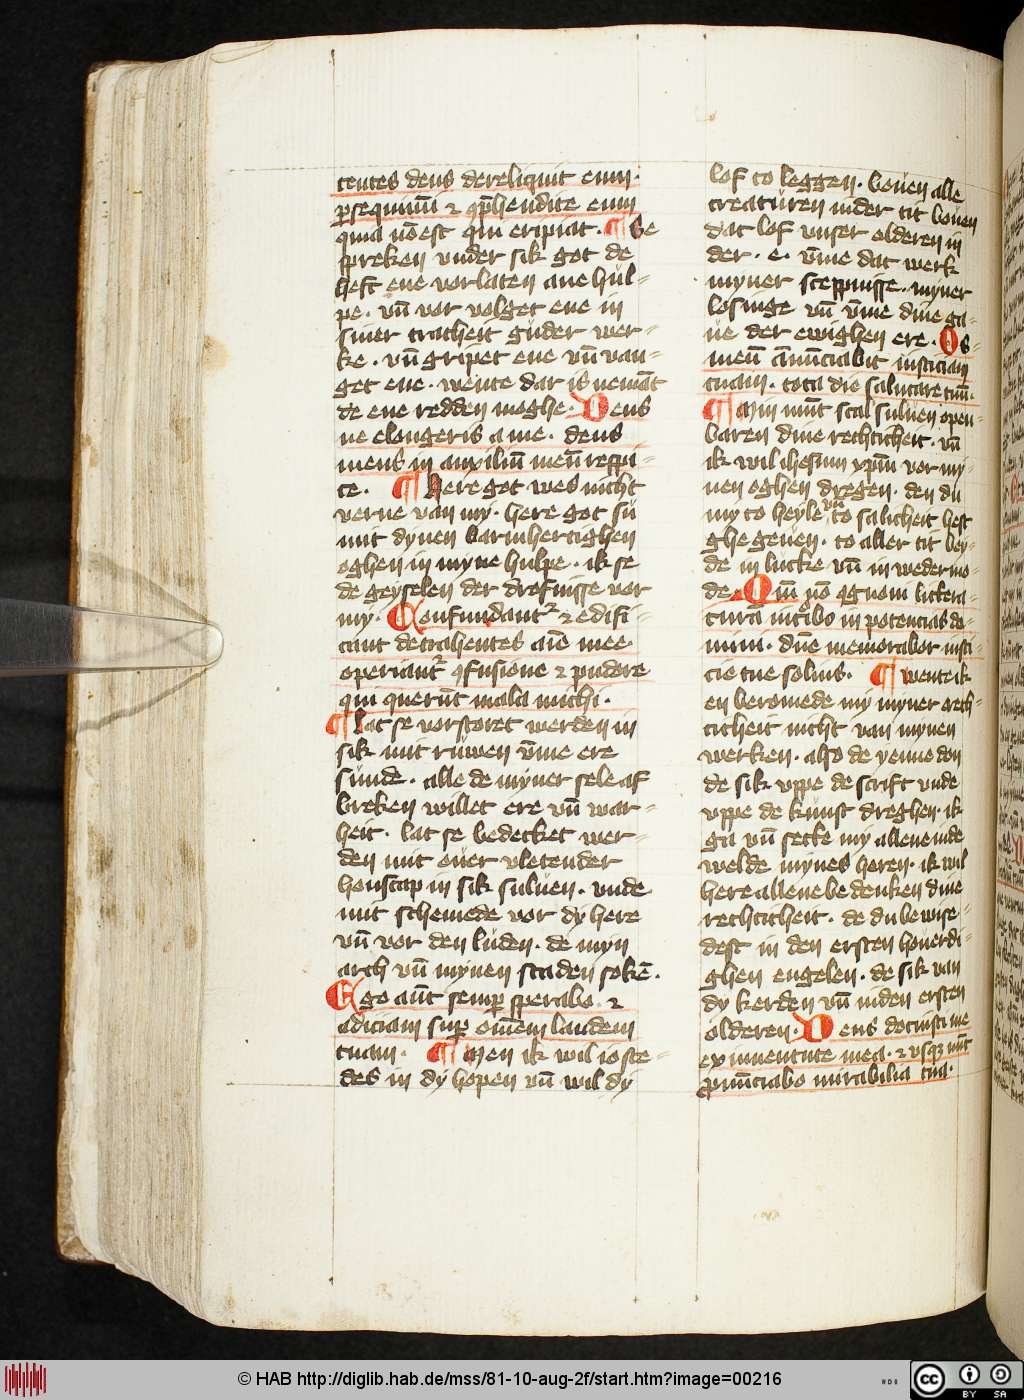 centes deus dereliquit eum·
ꝑsequimiͫ ⁊ ꝯp̄hendite eum
quia nō est qui eripiat· ¶ Se
spreken vnder sik got de
heft ene vorlaten ane hul-
pe· vn̄ vor volget ene in
siner tracheit guder wer-
ke· vn̄ gripet ene vn̄ van-
get ene· wente dar is nemāt
de ene redden moghe· Deus
ne elongeris a me· deus
meus in auxiliū meū respi-
ce· ¶ Here got wes nicht
verne van my· here got sü
mit dynen barmhertighen
oghen in myne hulpe· ik se
de geyselen der drofnisse vor
my· Confundant᷑ ⁊ edifi-
ciant detrahentes aīe mee·
operiant᷑ ꝯfusione ⁊ pudore
qui querūt mala michi·
¶ Lat se vorstoret werden in
sik mit rüwen v̄me ere
sünde· alle de myner sele af
breken willet ere vn̄ war-
heit· lat se bedecket wer-
den mit ouer vletender
honscap in sik suluen· vnde
mit schemede vor dy here
vn̄ vor den lüden· de myn
arch vn̄ mynen scaden sokē·
Ego aūt semꝑ sperabo· ⁊
adiciam suꝑ om̄em laudem
tuam· ¶ Men ik wil io ste-
des in dy hopen vn̄ wil dy
lof to leggen· bouen alle
creatüren nider tit bouen
dat lof vnser olderen in
der· e· v̄me dat werk
myner sceppnisse· myner
losinge vn̄ v̄me dine ga-
ue der ewighen ere· Os
meū an̄ūciabit iusticiam
tuam· tota die salutare tuū·
¶ Myn mūt scal suluen open-
baren dine rechticheit· vn̄
ik wil ihesum xp̄m vor my-
nen oghen dregen· den du
my to heyle vn̄ to salicheit hest
ghe geuen· to aller tit bey-
de in lücke vn̄ in wedermo-
de· Qm̄ nō ꝯgnoui littera-
turā ītroibo in potencias do-
mini· dn̄e memorabor iusti-
cie tue solius· ¶ Wente ik
en beromede my myner rech-
ticheit nicht van mynen
werken· also de yenne don
de sik vppe de scrift vnde
vppe de künst dreghen· ik
ga vn̄ secke my allene in de
welde mynes heren· ik wil
here allene bedenken dine
rechticheit· de du bewise-
dest in den ersten houerdi-
ghen engelen· de sik van
dy kerden vn̄ in den ersten
olderen· Deus docuisti me
ex iuuentute mea· ⁊ usqꝫ nūc
pronūciabo mirabilia tua·
© HAB http://diglib.hab.de/mss/81-10-aug-2f/start.htm?image=00216
HAB
cc BY SA